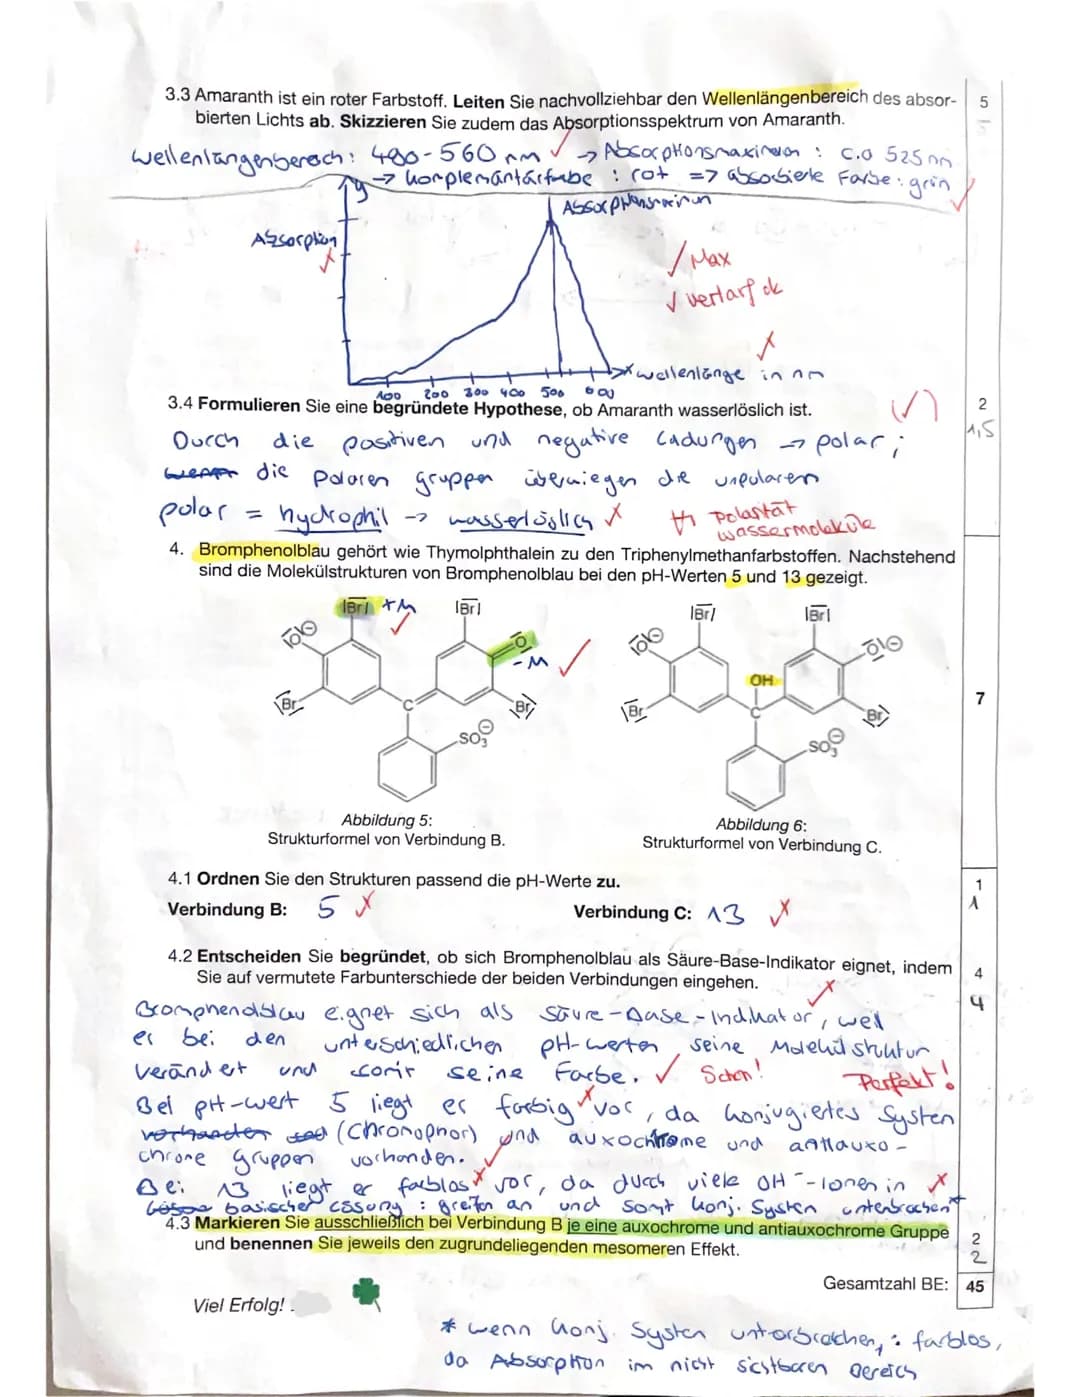 3.3 Amaranth ist ein roter Farbstoff. Leiten Sie nachvollziehbar den Wellenlängenbereich des absor-
bierten Lichts ab. Skizzieren Sie zudem das Absorptionsspektrum von Amaranth.
5
5
Wellenlängenbereich: 490-560 nm ✓ → Absorptionsmaximum : c.a 525 nm
→ Komplementärfarbe : rot => absorbierte Farbe: grün
y
Absorptionsmaximum
Absorption
✓ Max
✓ verlauf ok
x wellenlänge in nm
100 200 300 400 500 600
3.4 Formulieren Sie eine begründete Hypothese, ob Amaranth wasserlöslich ist.
(✓)
2
1,5
Durch die positiven und negative Ladungen → polar ;
wenn die Polaren gruppen überwiegen die unpolaren
polar = hydrophil → wasserlöslich
Polarität
wassermoleküle
4. Bromphenolblau gehört wie Thymolphthalein zu den Triphenylmethanfarbstoffen. Nachstehend
sind die Molekülstrukturen von Bromphenolblau bei den pH-Werten 5 und 13 gezeigt.
7
|Br| +M |Br| |Br| |Br|
|O|⊖ O -M |O|⊖ |O|⊖
OH
Br C Br Br C Br
SO3⊖ SO3⊖
Abbildung 5:
Strukturformel von Verbindung B.
Abbildung 6:
Strukturformel von Verbindung C.
4.1 Ordnen Sie den Strukturen passend die pH-Werte zu.
1
1
Verbindung B: 5 Verbindung C: 13
4.2 Entscheiden Sie begründet, ob sich Bromphenolblau als Säure-Base-Indikator eignet, indem
Sie auf vermutete Farbunterschiede der beiden Verbindungen eingehen.
4
4
Bromphenolblau eignet sich als Säure-Base-Indikator, weil
er bei den unterschiedlichen pH-werten seine Molekülstruktur
verändert und somit seine Farbe. ✓ Schön! Perfekt!
Bei pH-wert 5 liegt er farbig vor, da konjugiertes System
vorhanden und (Chromophor) und auxochrome und antiauxo-
chrome gruppen vorhanden.
Bei 13 liegt er farblos vor, da durch viele OH⁻-Ionen in
basischer Lösung : greifen an und somit konj. System unterbrochen*
4.3 Markieren Sie ausschließlich bei Verbindung B je eine auxochrome und antiauxochrome Gruppe
und benennen Sie jeweils den zugrundeliegenden mesomeren Effekt.
2
2
Gesamtzahl BE: 45
Viel Erfolg!
* wenn konj. System unterbrochen, : farblos,
da Absorption im nicht sichtbaren Bereich